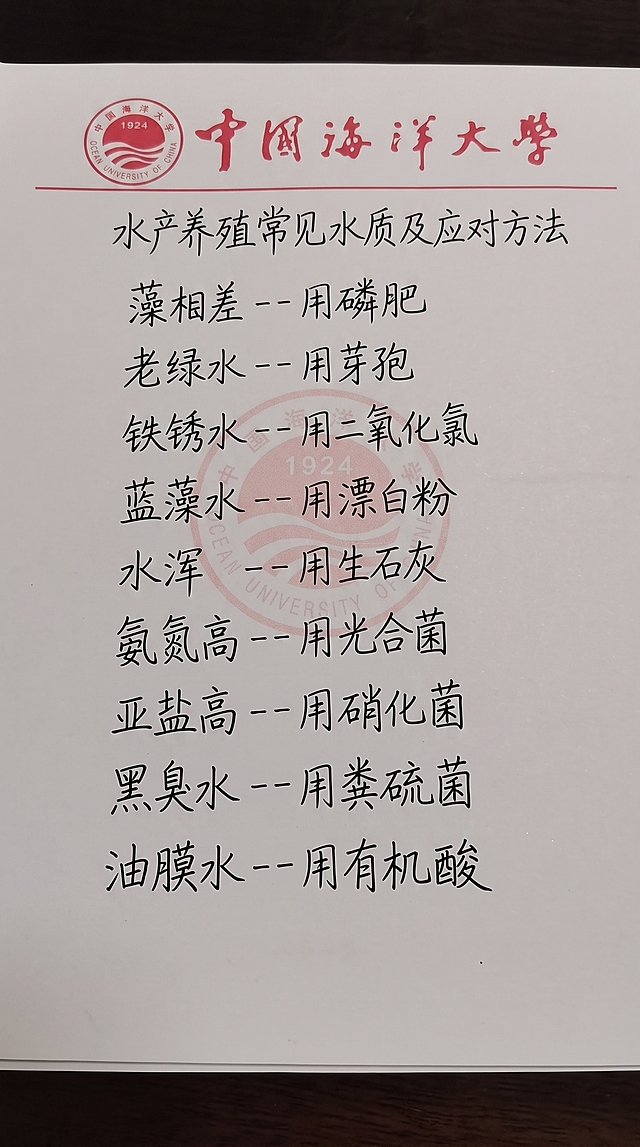 中国海洋大学
1924
OCEAN UNIVERSITY OF CHINA
中国海洋大学
水产养殖常见水质及应对方法
藻相差--用磷肥
老绿水--用芽孢
铁锈水--用二氧化氯
蓝藻水--用漂白粉
水浑 --用生石灰
氨氮高--用光合菌
亚盐高--用硝化菌
黑臭水--用粪硫菌
油膜水--用有机酸
中国海洋大学
1924
OCEAN UNIVERSITY OF CHINA